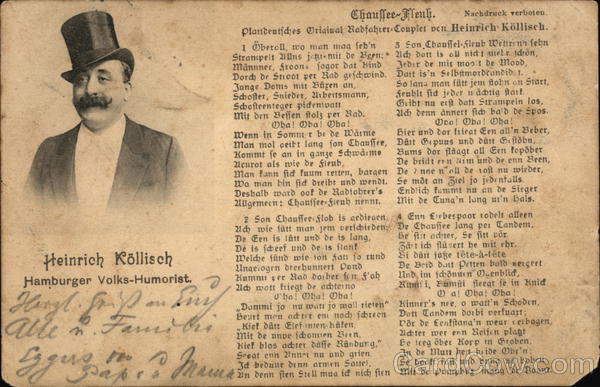 Chaussee-Fleuh.
Nachdruck verboten.
Plattdeutsches Original Radfahrer-Couplet von Heinrich Köllisch.
1 Överall, wo man mag seh'n
Strampelt Allns jetzt mit de Been;
Männner, Froons sogor dat Kind
Dorch de Stroot per Rad geschwind.
Junge Doms mit Büxen an,
Schoster, Snieder, Arbeitsmann,
Schosteenfeger
Mit den Bessen stolz per Rad.
Oha! Oha! Oha!
Wenn in Sommer bi de Wärme
Man mol geiht lang son Chaussee,
Kommt se an in ganze Schwärms
Akurot als wie de Fleuh,
Man kann sick kuum retten, bargen
Wo man hin sick dreiht und wendt.
Deshalb ward ook de Radfohrer's
Allgemein: Chaussee-Fleuh nennt.
2 Son Chaussee-Floh is gediegen,
Ook wie sütt man jem verschieden;
De Een is lütt und de is lang,
Dé is scheef und de is slank
Welche sünd wie son Fatt so rund
Ungezogen drechunnert Pund
Kummt per Rad dorher son F'oh
Ach wott kriegt de achterno
O'ha! Oha! Oha!
„Dammi jo nu wat jo wäll rieten"
Heurt man achter em noch schreen
„Kiek dütt Elefanten-Küken.
Mit de unverschamten Been,
Kiek blos achter düsse Ründung,"
Seggt een Anner nu und grien.
Ick bedur denn armen Sattel,
Un denn sien Stell mug ick nich sien
3 Son Chaussee-Fleuh Wettrenn sehn
Ach datt is all nich mehr schön,
Jeder de mit mookt de Mood,
Datt is'n Selbstmordcandidat.
So lang man sütt jem stohn an Start,
Freuht sich jeder mächtig stark
Geiht nu erst datt Strampeln los,
Ach denn ännert sich bald de Spos.
Oha! Oha! Oha!
Hier und dor kriegt Een all'n Bewer,
Dütt Gepuus und dütt Gestöhn,
Bums dor slöögt all Een kopöber
De brickt een Arm und de een Been,
De Anner n'oll de roff nu wieder,
Se möt an Ziel jo jedenfalls.
Endlich kummt nu an de Sieger
Mit de Tung'n lang ut'n Hals.
4 Enn Liebespoor rodelt alleen
De Chaussee lang per Tandem,
He sitt achter, Se sitt vör.
Zärtlich flüstert he mit ehr.
Bi dütt söte tête-à-tête
De Beid datt Petten bald vergett
Und im schönsten Ogenblick,
Kummt, Bumms! fleegt se in Knick
O a! Oha! Oha!
Kinner's nee, o watt'n Schoden,
Datt Tandem dorbi verkuart;
Vör de Lenkstang'n weur verbogen,
Achter weer een Reifen platzt
He leeg öber Kopp in Groben.
In de Mun
Heinrich Köllisch
Hamburger Volks-Humorist.
Herzl. Gruß an Euch
Alle u. Familie
Eggers von
Papa u Mama
CardCow.com